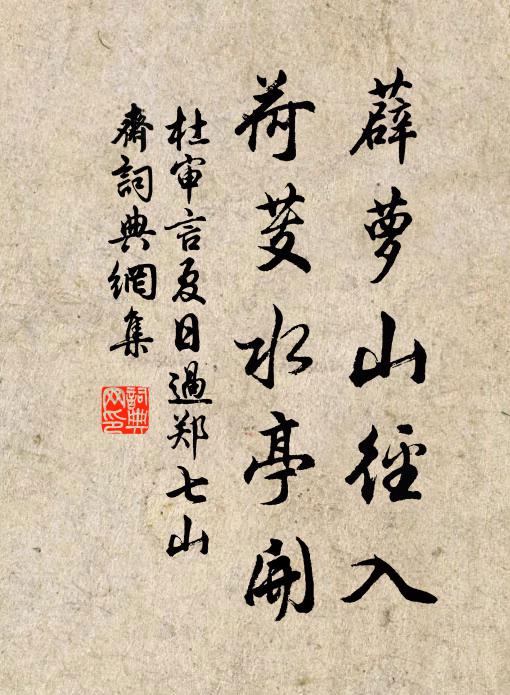 薜萝山徑入
荷芰水亭開
杜审言夏日過郑七山
齋詞典網集
詞典
网印